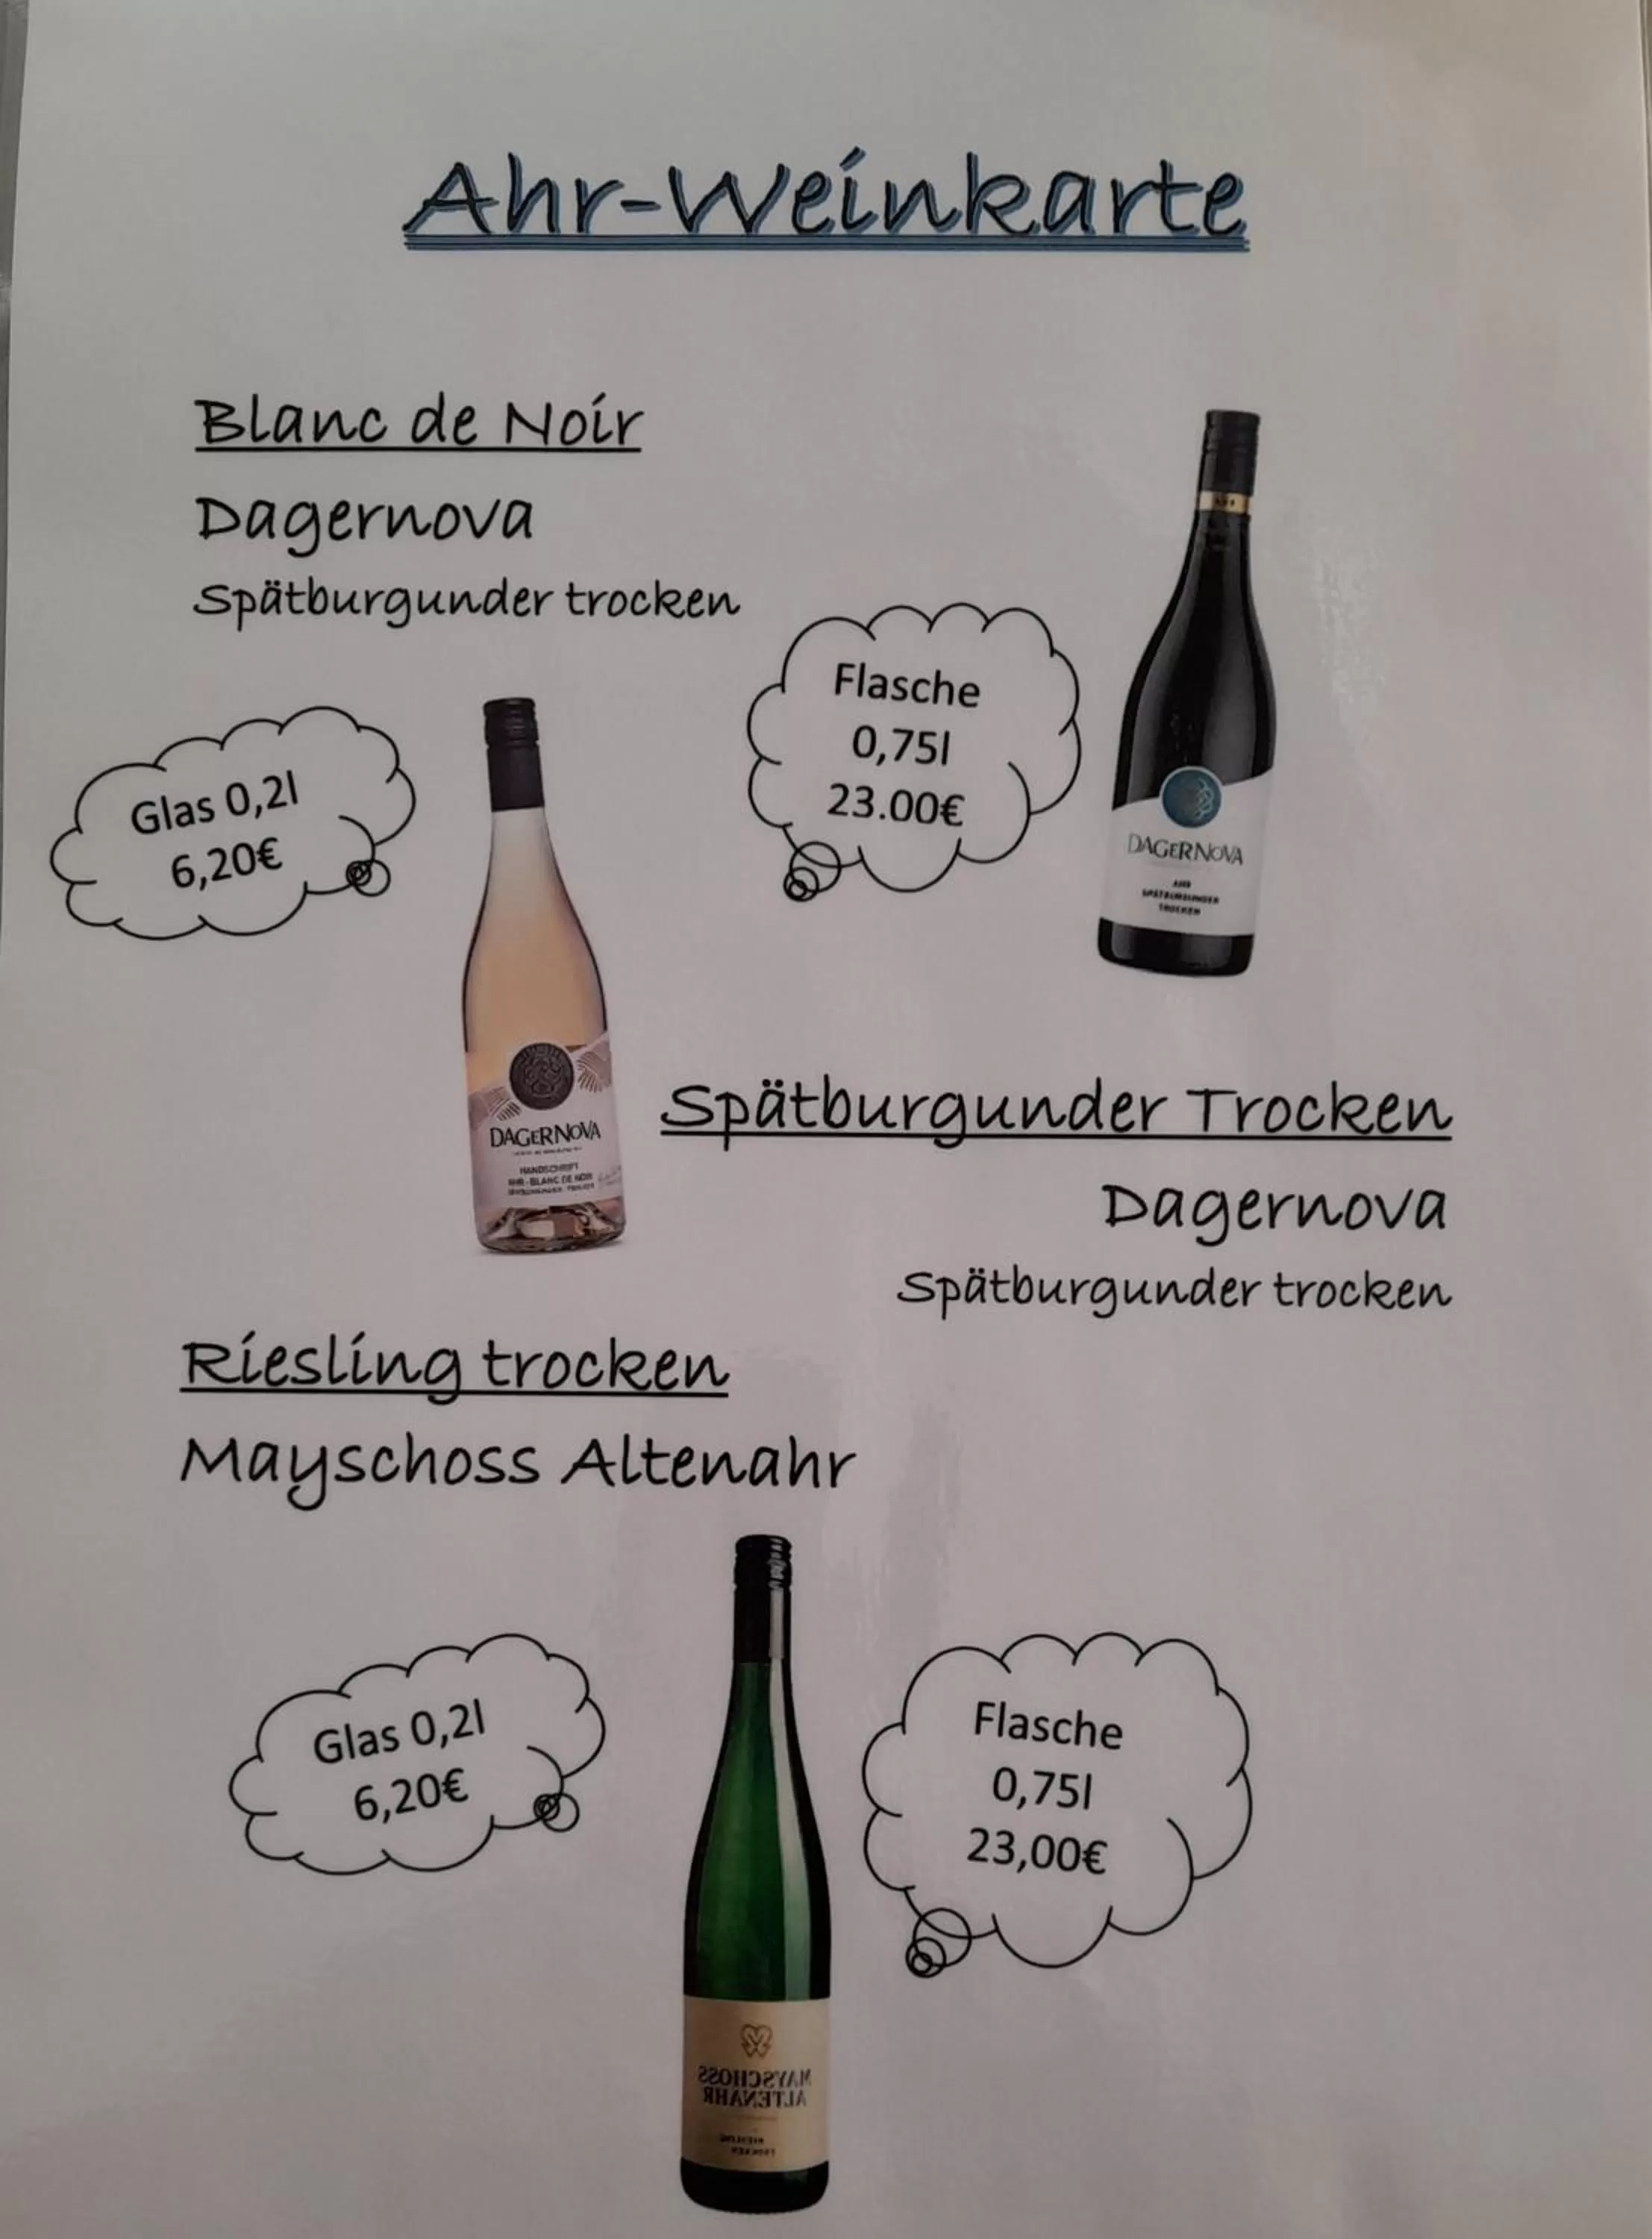 Ahr-Weinkarte
Blanc de Noir
Dagernova
Spätburgunder trocken
Glas 0,2l
6,20€
Flasche
0,75l
23.00€
DAGERNOVA
AHR
SPÄTBURGUNDER
TROCKEN
DAGERNOVA
HANDSCHRIFT
AHR - BLANC DE NOIR
Spätburgunder Trocken
Dagernova
Spätburgunder trocken
Riesling trocken
Mayschoss Altenahr
Glas 0,2l
6,20€
Flasche
0,75l
23,00€
MAYSCHOSS
ALTENAHR
RIESLING
TROCKEN